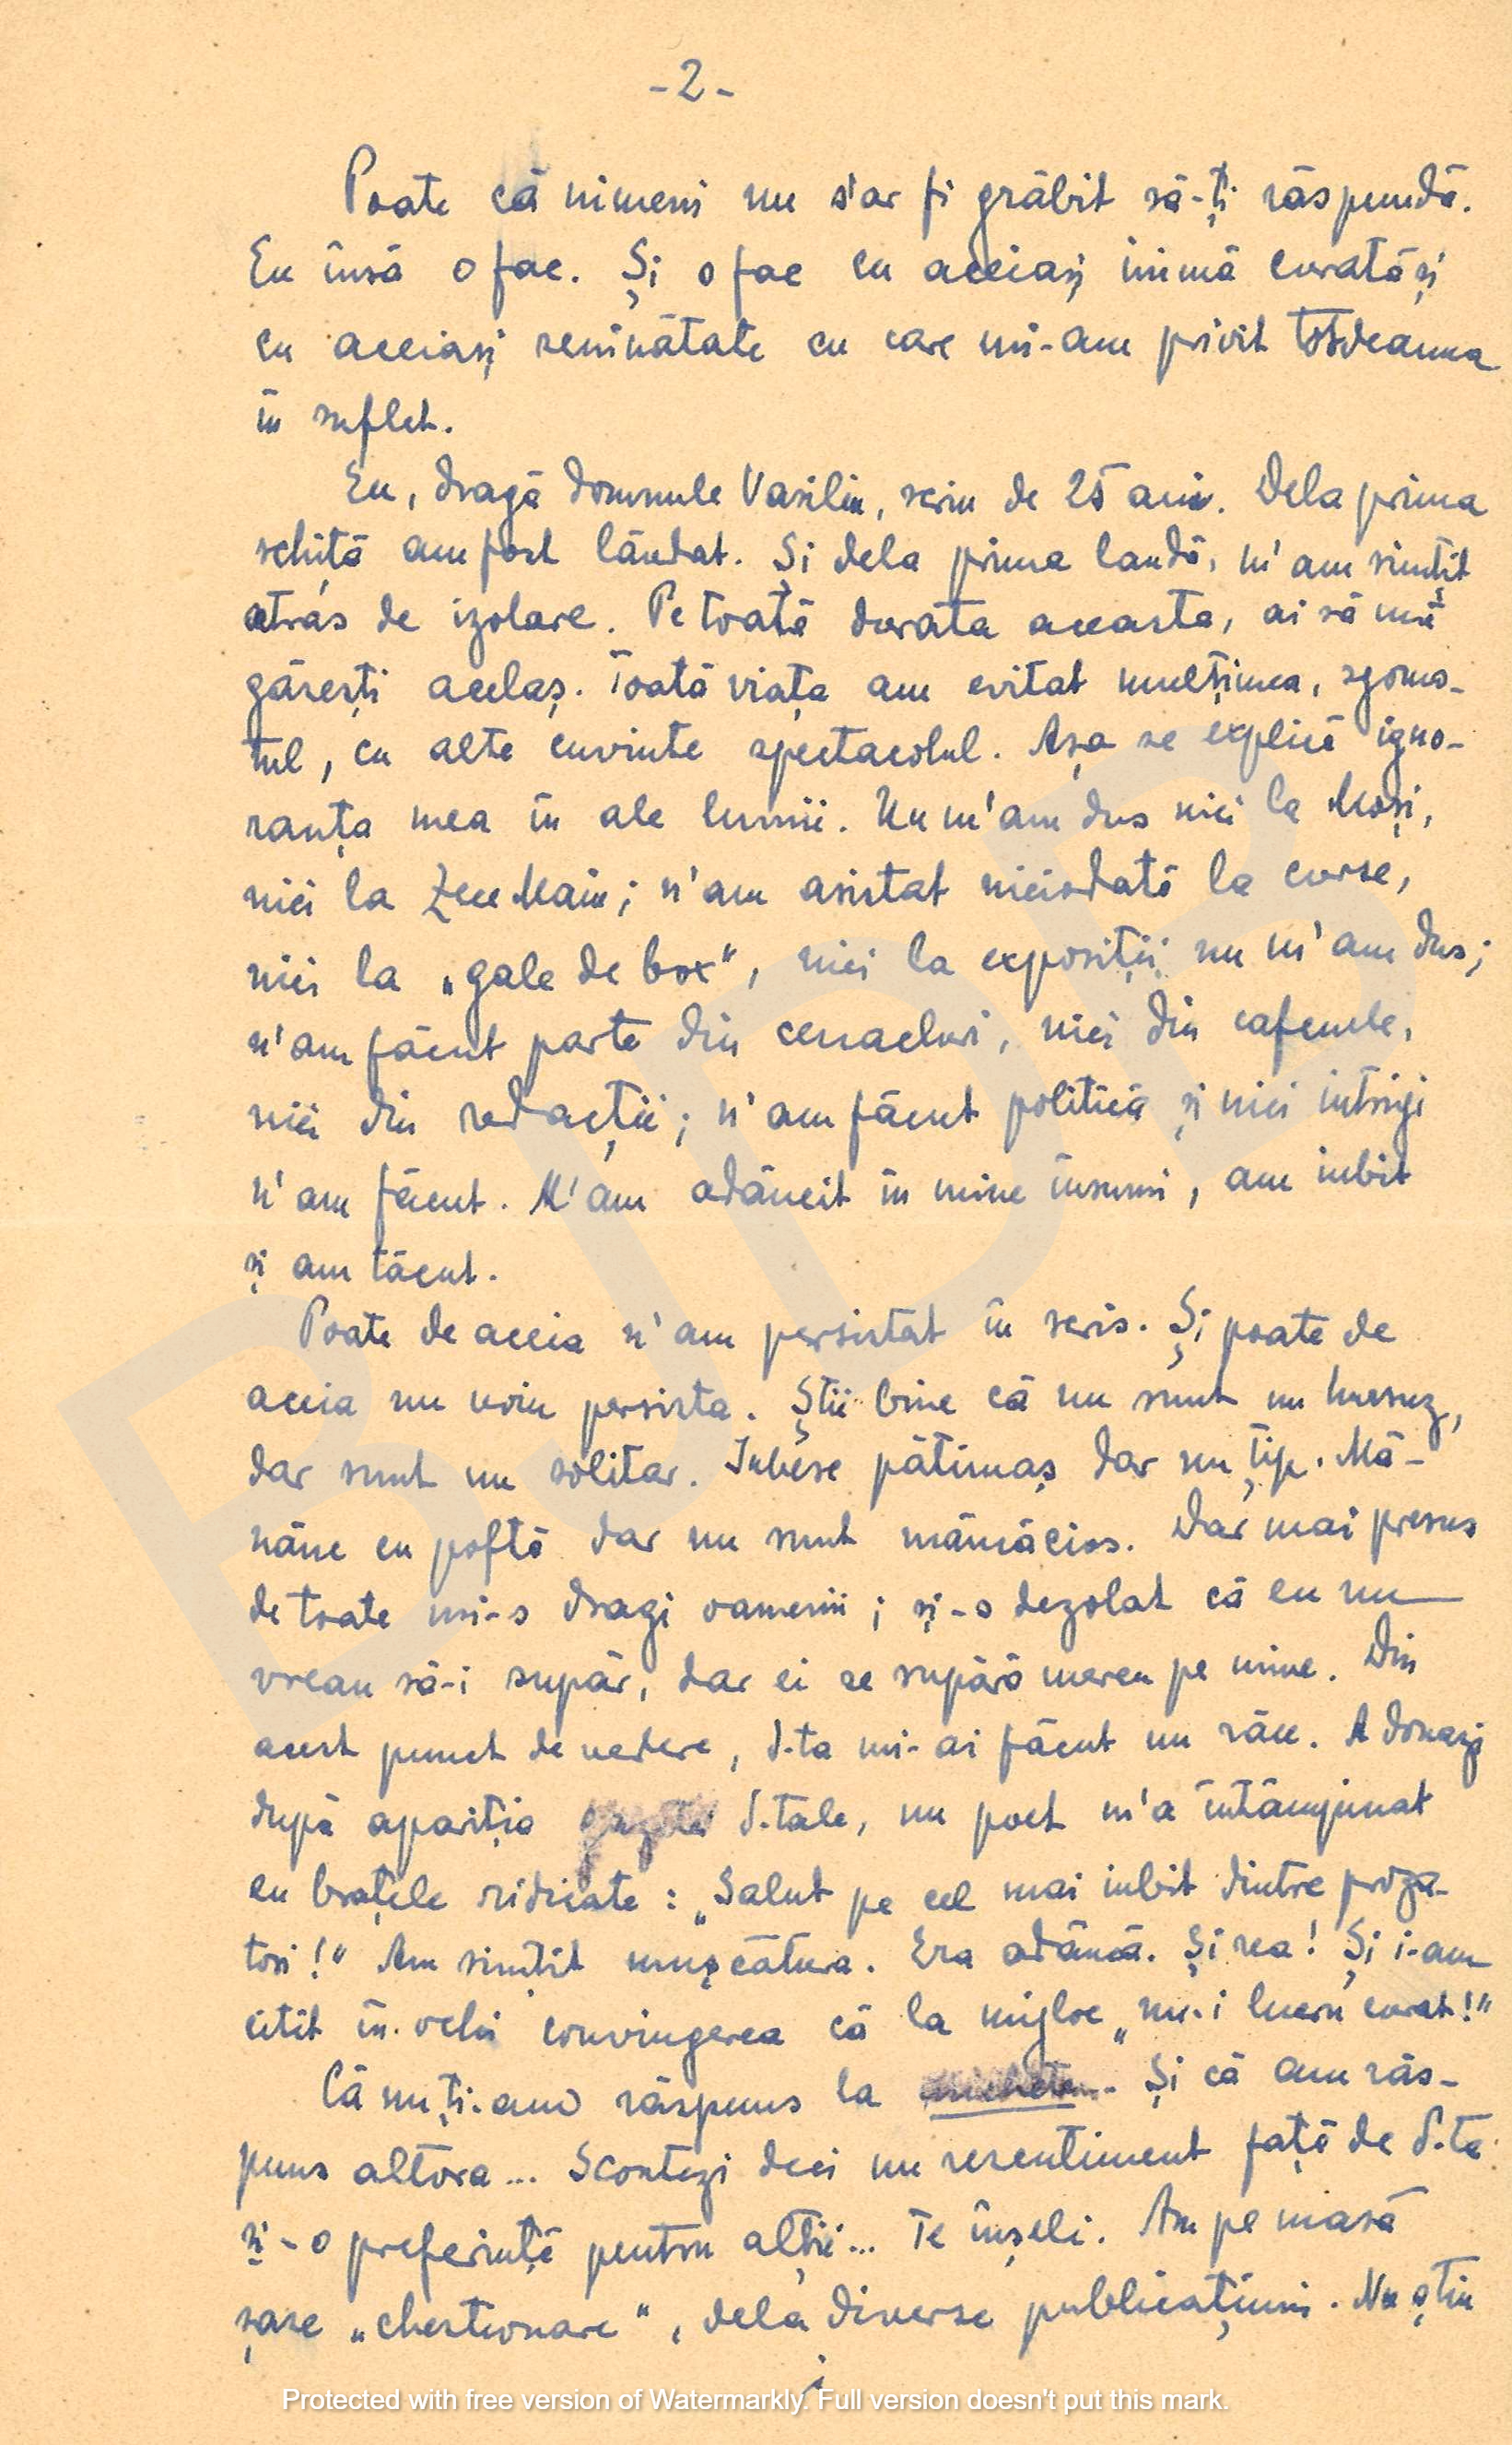 -2-
Poate că nimeni nu s'ar fi grăbit să-ți răspundă.
Eu însă o fac. Și o fac cu aceiași inimă curată și
cu aceiași seninătate cu care mi-am privit totdeauna
în suflet.
Eu, dragă domnule Vasiliu, scriu de 25 ani. Dela prima
schiță am fost lăudat. Și dela prima laudă, m'am simțit
atras de izolare. Pe toată durata aceasta, ai să mă
găsești acelaș. Toată viața am evitat mulțimea, sgomo-
tul, cu alte cuvinte spectacolul. Așa se explică igno-
ranța mea în ale lumii. Nu m'am dus nici la Moși,
nici la Zece Maiu; n'am asistat niciodată la curse,
nici la „gale de box", nici la expoziții nu m'am dus;
n'am făcut parte din cenacluri, nici din cafenele,
nici din redacții; n'am făcut politică și nici intrigi
n'am făcut. M'am adâncit în mine însumi, am iubit
și am tăcut.
Poate de aceia n'am persistat în scris. Și poate de
aceia nu voiu persista. Știi bine că nu sunt un hursuz,
dar sunt un solitar. Iubesc pătimaș dar nu țip. Mă-
nânc cu poftă dar nu sunt mâncăcios. Dar mai presus
de toate mi-s dragi oamenii; și-s dezolat că eu nu
vreau să-i supăr, dar ei se supără mereu pe mine. Din
acest punct de vedere, d-ta mi-ai făcut un rău. A doua zi
după apariția d-tale, un poet m'a întâmpinat
cu brațele ridicate: „Salut pe cel mai iubit dintre proza-
tori!" Am simțit mușcătura. Era adâncă. Și rea! Și i-am
citit în ochi convingerea că la mijloc „nu-i lucru curat!"
Că nu ți-am răspuns la Și că am răs-
puns altora... Scontezi deci un resentiment față de d-ta
și-o preferință pentru alții... Te înșeli. Am pe masă
șase „chestionare", dela diverse publicațiuni. Nu știu
Protected with free version of Watermarkly. Full version doesn't put this mark.
BJDB